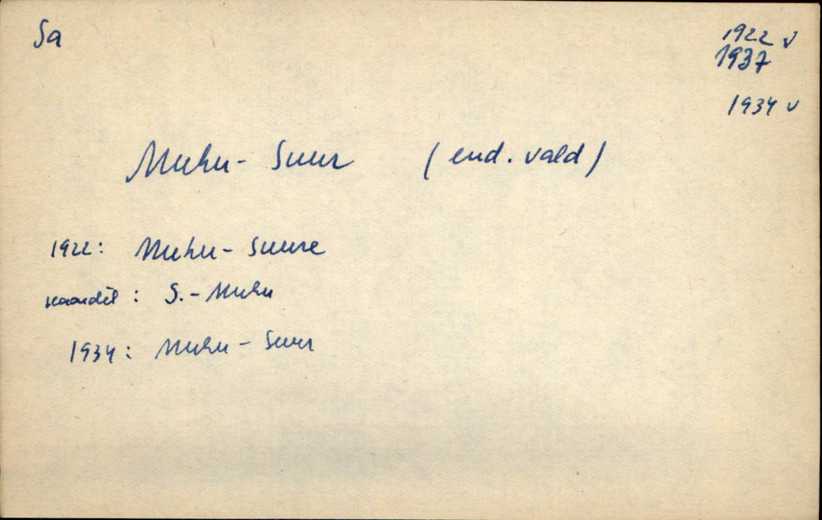 Sa
1922 v
1937
1934 v
Muhu-Suur (end. vald)
1922: Muhu-Suure
kaardil: S.-Muhu
1934: Muhu-Suur